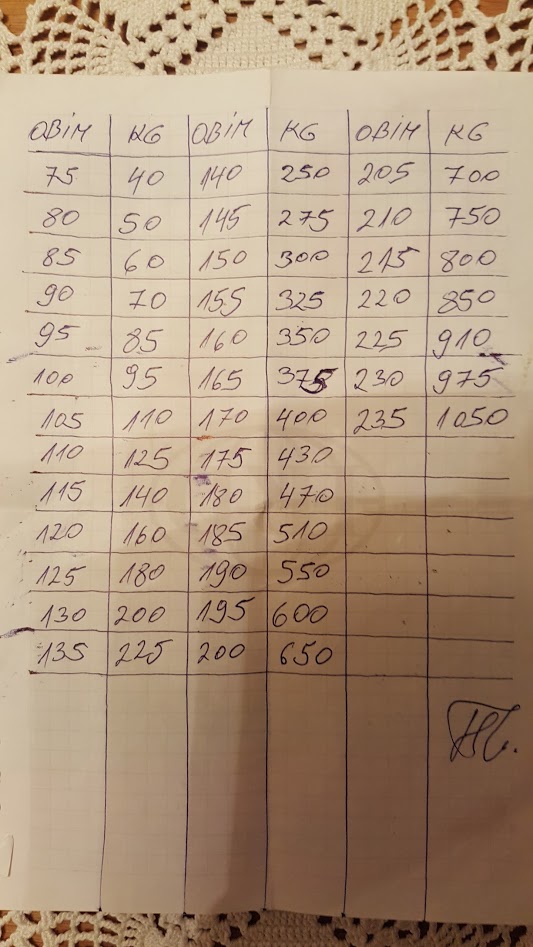 OBIM KG OBIM KG OBIM KG
75 40 140 250 205 700
80 50 145 275 210 750
85 60 150 300 215 800
90 70 155 325 220 850
95 85 160 350 225 910
100 95 165 375 230 975
105 110 170 400 235 1050
110 125 175 430
115 140 180 470
120 160 185 510
125 180 190 550
130 200 195 600
135 225 200 650